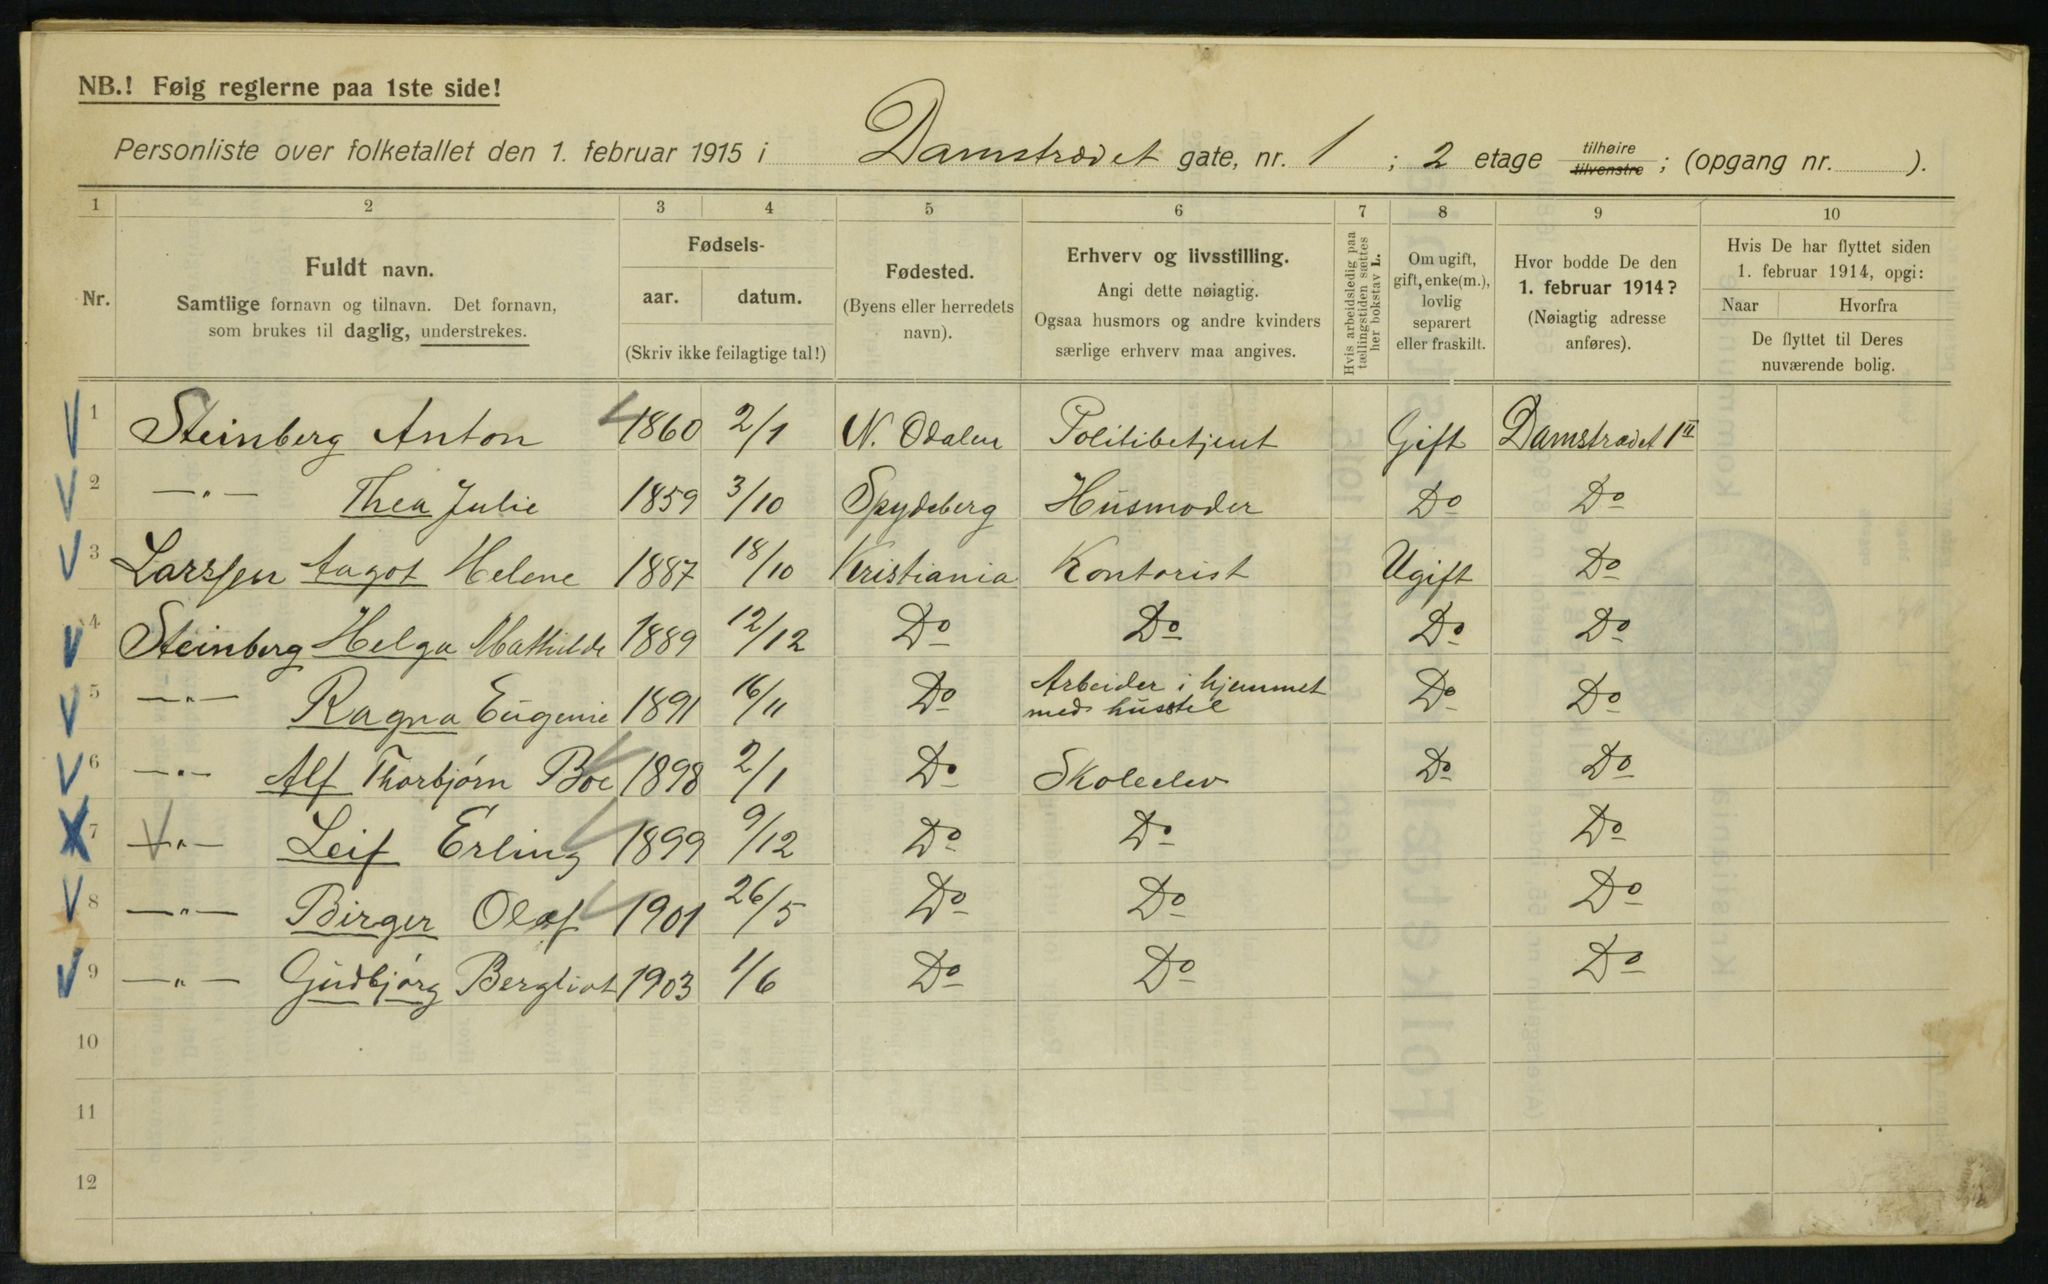 NB.! Følg reglerne paa 1ste side!
Personliste over folketallet den 1. februar 1915 i Damstrædet gate, nr. 1 ; 2 etage tilhøire tilvenstre ; (opgang nr. ).
1 2 3 4 5 6 7 8 9 10
Nr.
Fuldt navn.
Samtlige fornavn og tilnavn. Det fornavn,
som brukes til daglig, understrekes.
Fødsels-
aar. datum.
(Skriv ikke feilagtige tal!)
Fødested.
(Byens eller herredets
navn).
Erhverv og livsstilling.
Angi dette nøiagtig.
Ogsaa husmors og andre kvinders
særlige erhverv maa angives.
Hvis arbeidsledig paa
tællingstiden sættes
her bokstav L.
Om ugift,
gift, enke(m.),
lovlig
separert
eller fraskilt.
Hvor bodde De den
1. februar 1914?
(Nøiagtig adresse
anføres).
Hvis De har flyttet siden
1. februar 1914, opgi:
Naar Hvorfra
De flyttet til Deres
nuværende bolig.
1 Steinberg Anton 1860 2/1 N. Odalen Politibetjent Gift Damstrædet 1 II
2 —"— Thea Julie 1859 3/10 Spydeberg Husmoder Do Do
3 Larssen Aagot Helene 1887 18/10 Kristiania Kontorist Ugift Do
4 Steinberg Helga Mathilde 1889 12/12 Do Do Do Do
5 —"— Ragna Eugenie 1891 16/11 Do Arbeider i hjemmet Do Do
med husstel
6 —"— Alf Thorbjørn Boe 1898 2/1 Do Skoleelev Do Do
7 —"— Leif Erling 1899 9/12 Do Do Do
8 —"— Birger Olaf 1901 26/5 Do Do Do
9 —"— Gudbjørg Bergliot 1903 1/6 Do Do Do
10
11
12